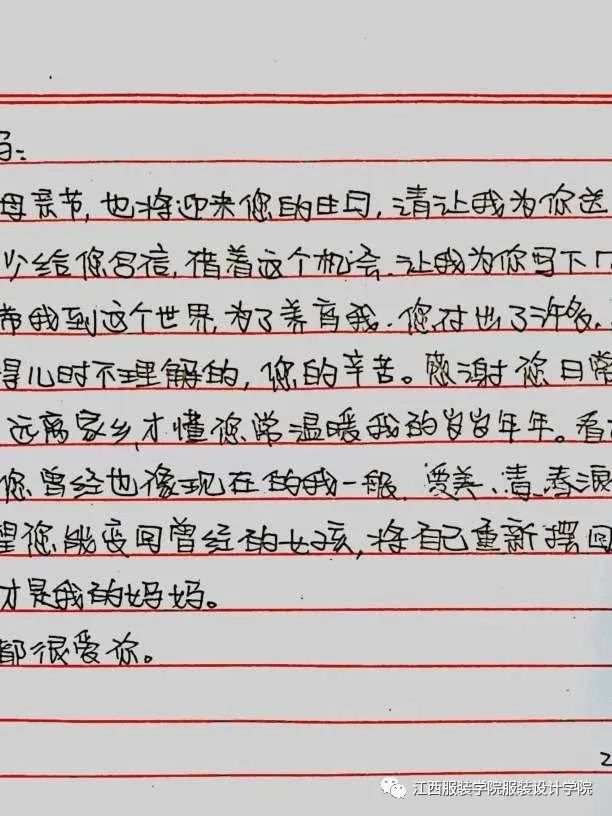 妈:
母亲节,也将迎来您的生日,请让我为你送
少给您写信,借着这个机会,让我为你写下
带我到这个世界,为了养育我,您付出了许多,
得儿时不理解的,您的辛苦。感谢您日常
远离家乡,才懂您常温暖我的岁岁年年。看
您曾经也像现在的我一般,爱美、青春浪
望您能变回曾经的女孩,将自己重新摆回
才是我的妈妈。
都很爱你。
2
江西服装学院服装设计学院